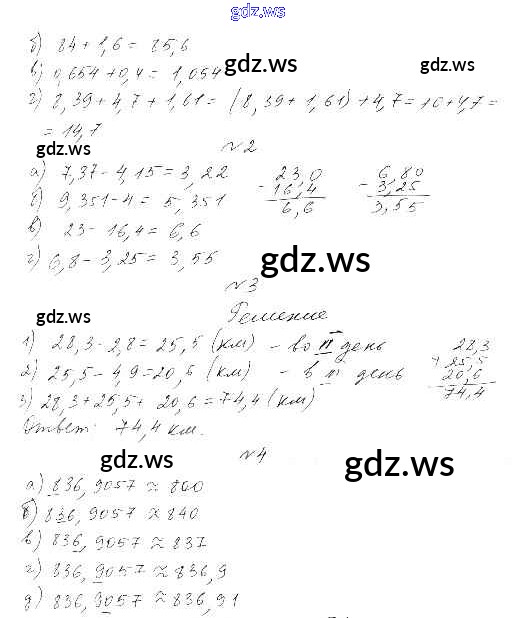 gdz.ws
б) 84 + 1,6 = 85,6
в) 0,654 + 0,4 = 1,054 gdz.ws gdz.ws
г) 8,39 + 4,7 + 1,61 = (8,39 + 1,61) + 4,7 = 10 + 4,7 =
= 14,7
gdz.ws №2
а) 7,37 - 4,15 = 3,22
б) 9,351 - 4 = 5,351
в) 23 - 16,4 = 6,6
г) 6,8 - 3,25 = 3,55
23,0
- 16,4
6,6
6,80
- 3,25
3,55
gdz.ws
№3
gdz.ws Решение
1) 28,3 - 2,8 = 25,5 (км) - во II день
2) 25,5 - 4,9 = 20,5 (км) - в III день
3) 28,3 + 25,5 + 20,6 = 74,4 (км)
28,3
+ 25,5
20,6
74,4
Ответ: 74,4 км.
gdz.ws №4 gdz.ws
а) 836,9057 ≈ 800
б) 836,9057 ≈ 840
в) 836,9057 ≈ 837
г) 836,9057 ≈ 836,9
д) 836,9057 ≈ 836,91